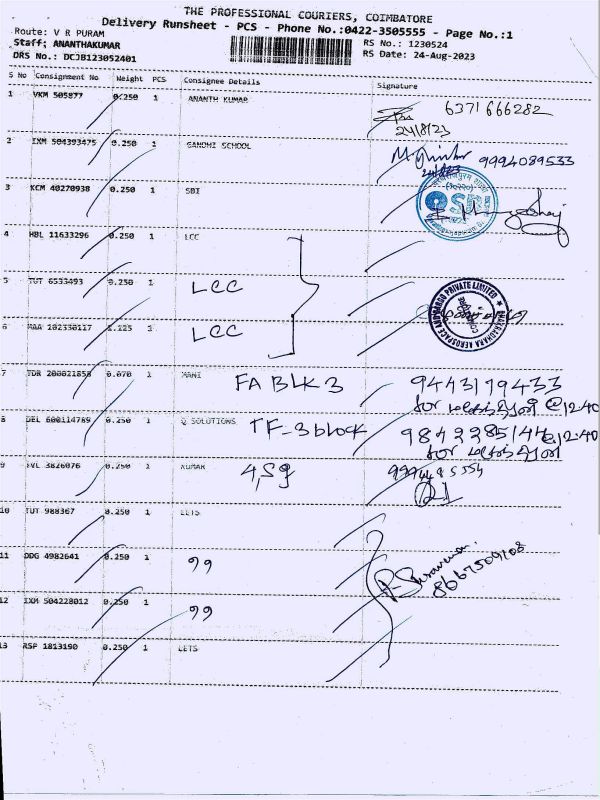 THE PROFESSIONAL COURIERS, COIMBATORE
Delivery Runsheet - PCS - Phone No.:0422-3505555 - Page No.:1
Route: V R PURAM
Staff; ANANTHAKUMAR
RS No.: 1230524
DRS No.: DCJB123052401
RS Date: 24-Aug-2023
S No Consignment No Weight PCS Consignee Details Signature
1 VKM 505877 0.250 1 ANANTH KUMAR 6371666282
24/8/23
2 IXM 504393475 0.250 1 GANDHI SCHOOL 9994089533
3 KCM 40270938 0.250 1 SBI
SBI
4 HBL 11633296 0.250 1 LCC
5 TUT 6533493 0.250 1 LCC
6 MAA 102330117 1.125 1 LCC
7 TDR 200021858 0.070 1 MANI FA BLK 3 9443179433
for @12.40
8 DEL 600114789 0.250 1 Q SOLUTIONS TF-3block 9842285144@12.40
for
9 IVL 3826076 0.250 1 KUMAR
10 TUT 988367 0.250 1 LETS
11 DDG 4982641 0.250 1 99
12 IXM 504228012 0.250 1 99
13 RSP 1813190 0.250 1 LETS